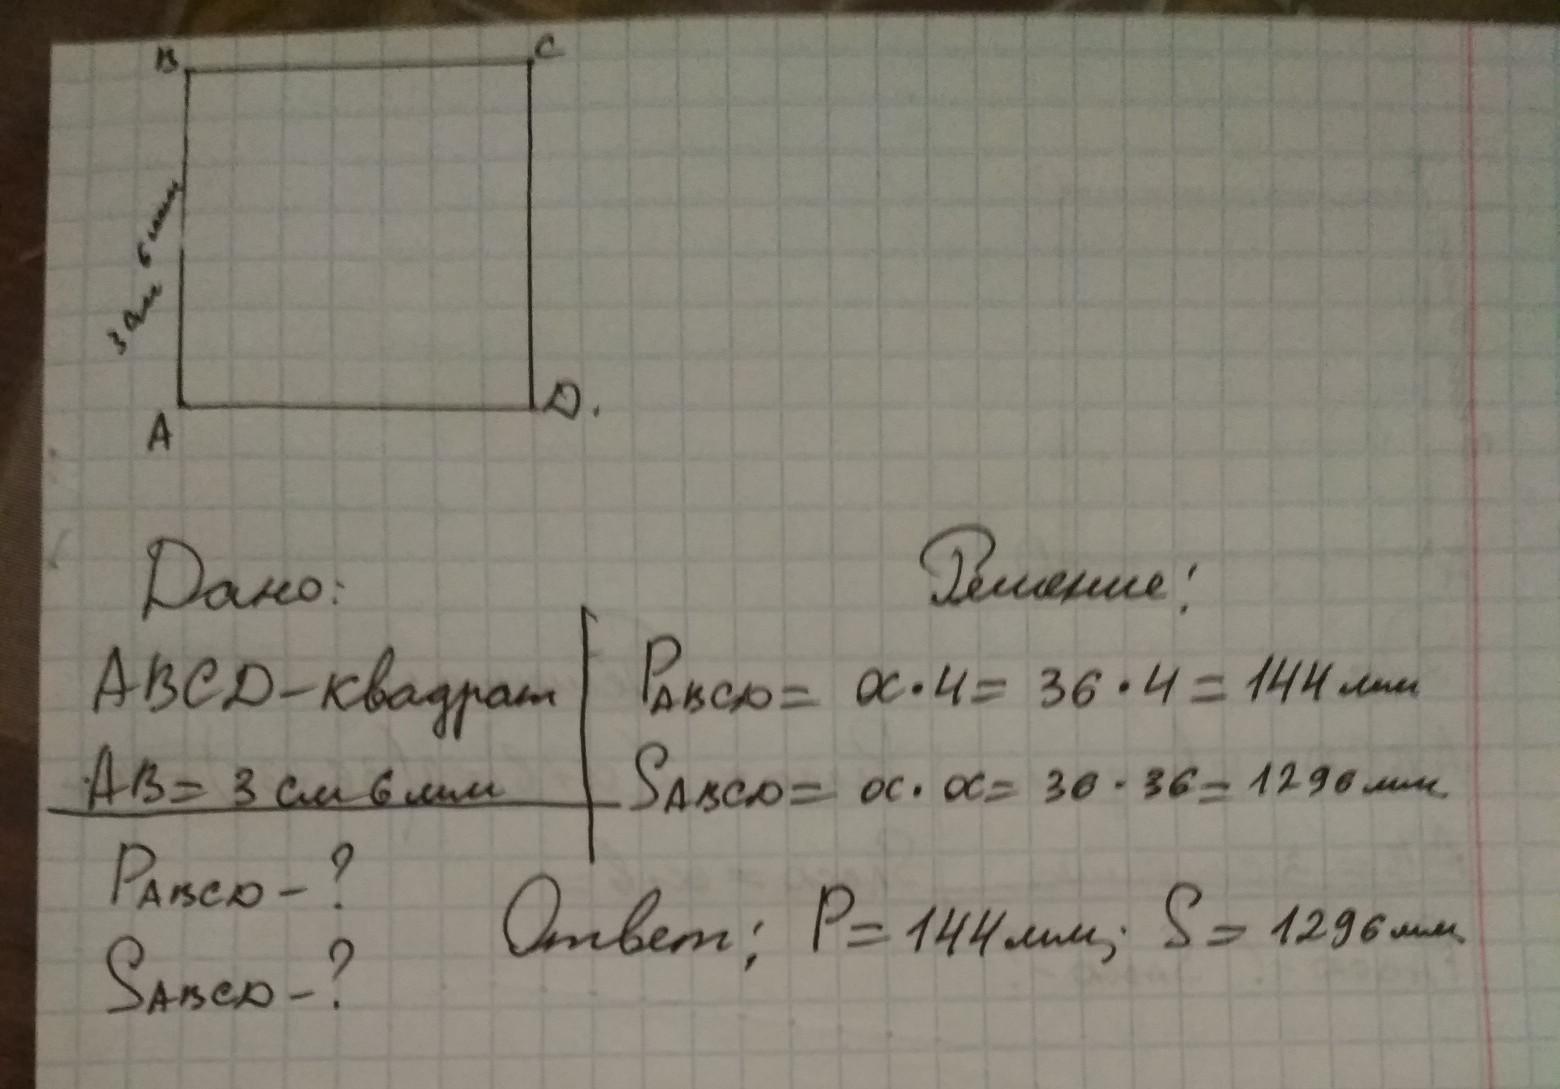 B C
3 см 6 мм
A D.
Дано:
ABCD - квадрат
AB = 3 см 6 мм
PABCD - ?
SABCD - ?
Решение:
PABCD = a · 4 = 36 · 4 = 144 мм
SABCD = a · a = 36 · 36 = 1296 мм
Ответ; P = 144 мм; S = 1296 мм